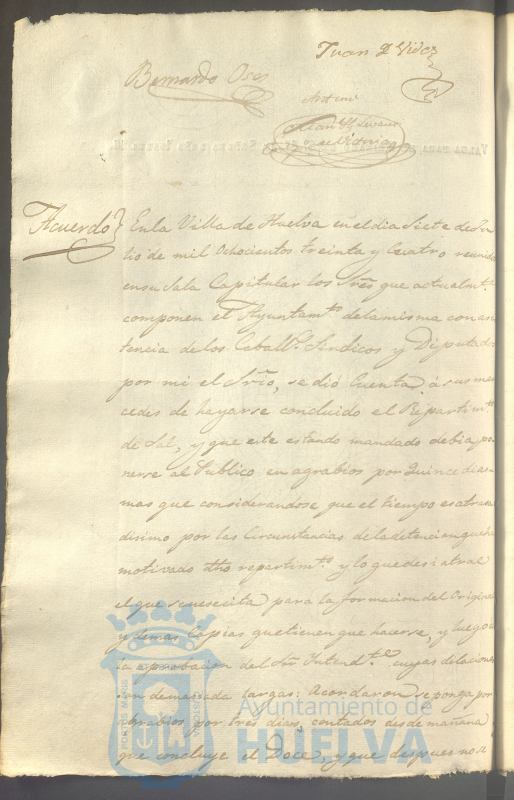 Juan D Vides
Bernardo Oses
Antemi
Juan
Acuerdo} En la Villa de Huelva en el dia Siete de Ju
lio de mil Ochocientos treinta y Cuatro reunidos
en su Sala Capitular los Sres que actualmte
componen el Ayuntamto de la misma con asis
tencia de los Caballs Sindicos y Diputados
por mi el Srio, se dió Cuenta á sus mer
cedes de hayarse concluido el Repartimto
de Sal, y que este estando mandado debia po
nerse al Publico en agrabios por Quince dias
mas que considerandose que el tiempo es atrasa
disimo por las Circunstancias de la detencion que ha
motivado dho repartimto y lo que
el que se nesecita para la formacion del Original
y demas Copias que tienen que hacerse, y luego a
la aprobacion del Sr Intendte cuyas dilaciones
son demasiada largas: Acordaron se ponga por
Agrabios por tres dias contados desde mañana
que concluye el Doce, y que despues no se
Ayuntamiento de
HUELVA